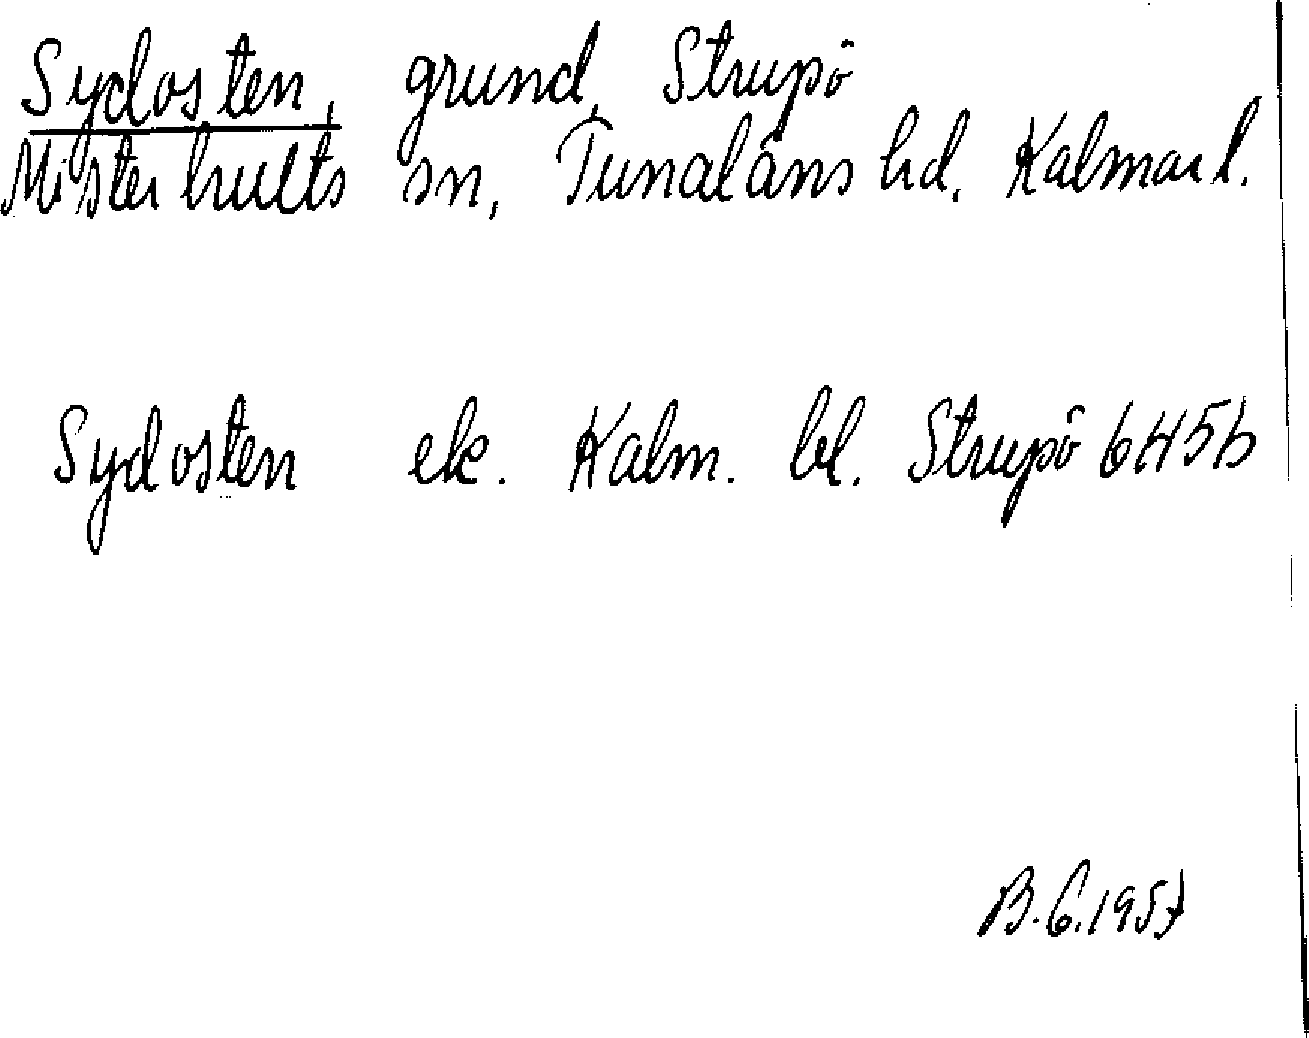 Sydosten, grund, Strupö
Misterhults sn, Tunaläns hd. Kalmar l.
Sydosten ek. Kalm. bl. Strupö 6H5b
B.G.1957